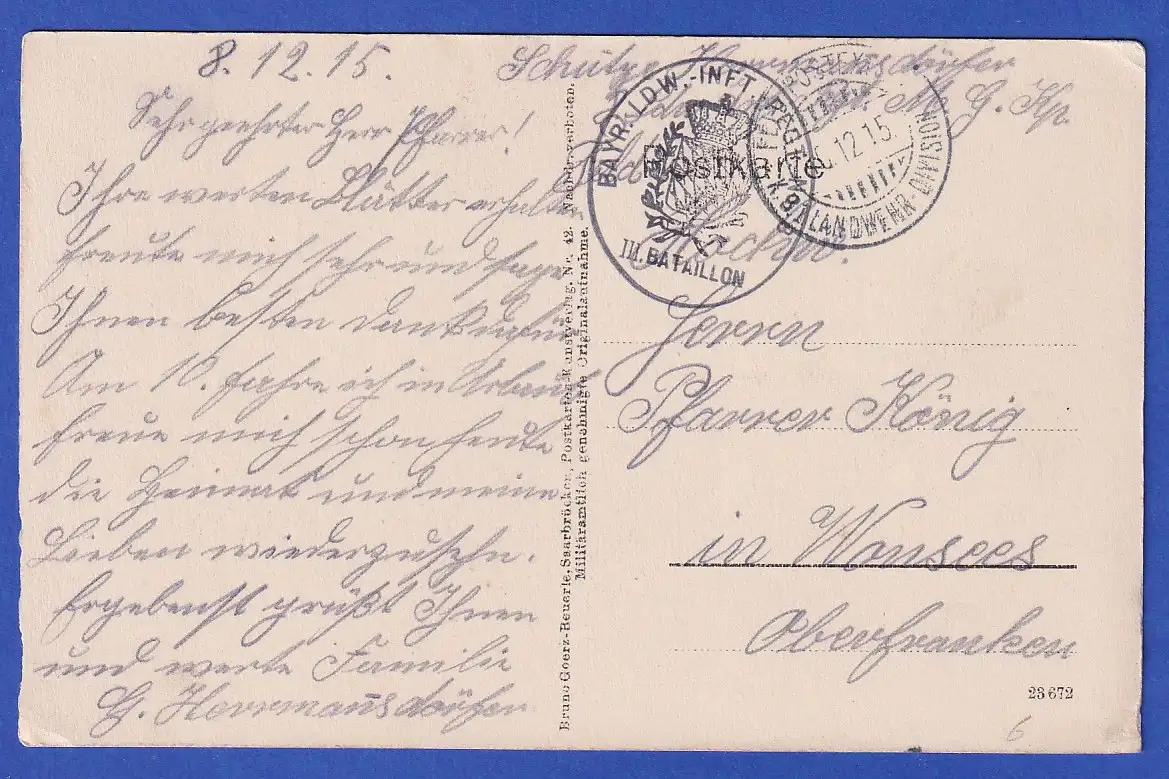 8. 12. 15.
Sehr geehrter Herr Pfarrer!
Ihre werten Blätter erhalten
freute mich sehr und sage
Ihnen besten Dank dafür
Am 10. fahre ich in Urlaub
freue mich schon heute
die Heimat und meine
Lieben wiederzusehn.
Ergebenst grüßt Ihnen
und werte Familie
G. Herrmannsdörfer
Bruno Goerz-Beuerle, Saarbrücken, Postkarten-Kunstverlag. Nr. 42. Nachdr. verboten.
Militäramtlich genehmigte Originalaufnahme.
Schütze Herrmannsdörfer
M. G. Kp.
Postkarte
BAYR. LDW.-INFT. REGT.
III. BATAILLON
12.15.
K.B. LANDWEHR-DIVISION
Herrn
Pfarrer König
in Wonsees
Oberfranken
23672
6